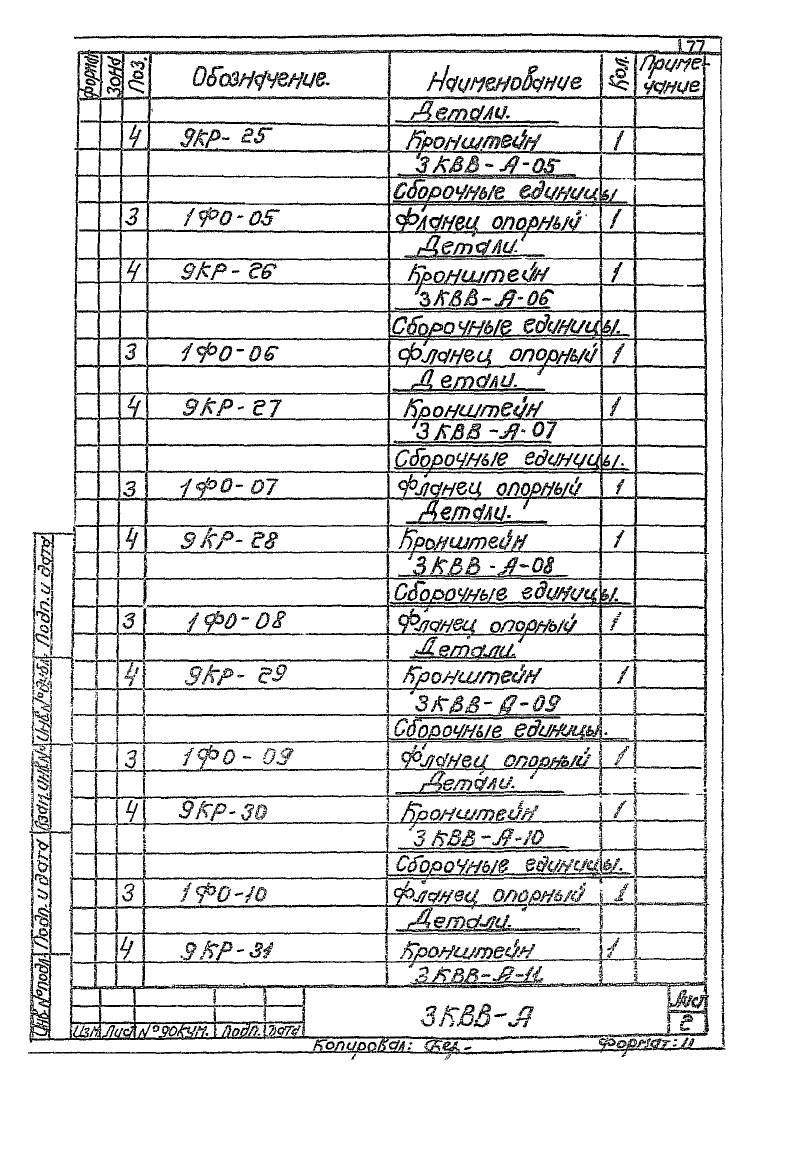 177
Форма Зона Поз. Обозначение. Наименование Кол. Примечание
Детали.
4 9КР-25 Кронштейн 1
3КВВ-А-05
Сборочные единицы
3 1ФО-05 Фланец опорный 1
Детали.
4 9КР-26 Кронштейн 1
3КВВ-А-06
Сборочные единицы.
3 1ФО-06 Фланец опорный 1
Детали.
4 9КР-27 Кронштейн 1
3КВВ-А-07
Сборочные единицы.
3 1ФО-07 Фланец опорный 1
Детали.
4 9КР-28 Кронштейн 1
3КВВ-А-08
Сборочные единицы.
3 1ФО-08 Фланец опорный 1
Детали.
4 9КР-29 Кронштейн 1
3КВВ-А-09
Сборочные единицы.
3 1ФО-09 Фланец опорный 1
Детали.
4 9КР-30 Кронштейн 1
3КВВ-А-10
Сборочные единицы.
3 1ФО-10 Фланец опорный 1
Детали.
4 9КР-31 Кронштейн 1
3КВВ-А-11
Инв.№подл. Подп. и дата Взам.инв.№ Инв.№дубл. Подп. и дата
Изм. Лист №докум. Подп. Дата
3КВВ-А
Лист
2
Копировал:
Формат: 11